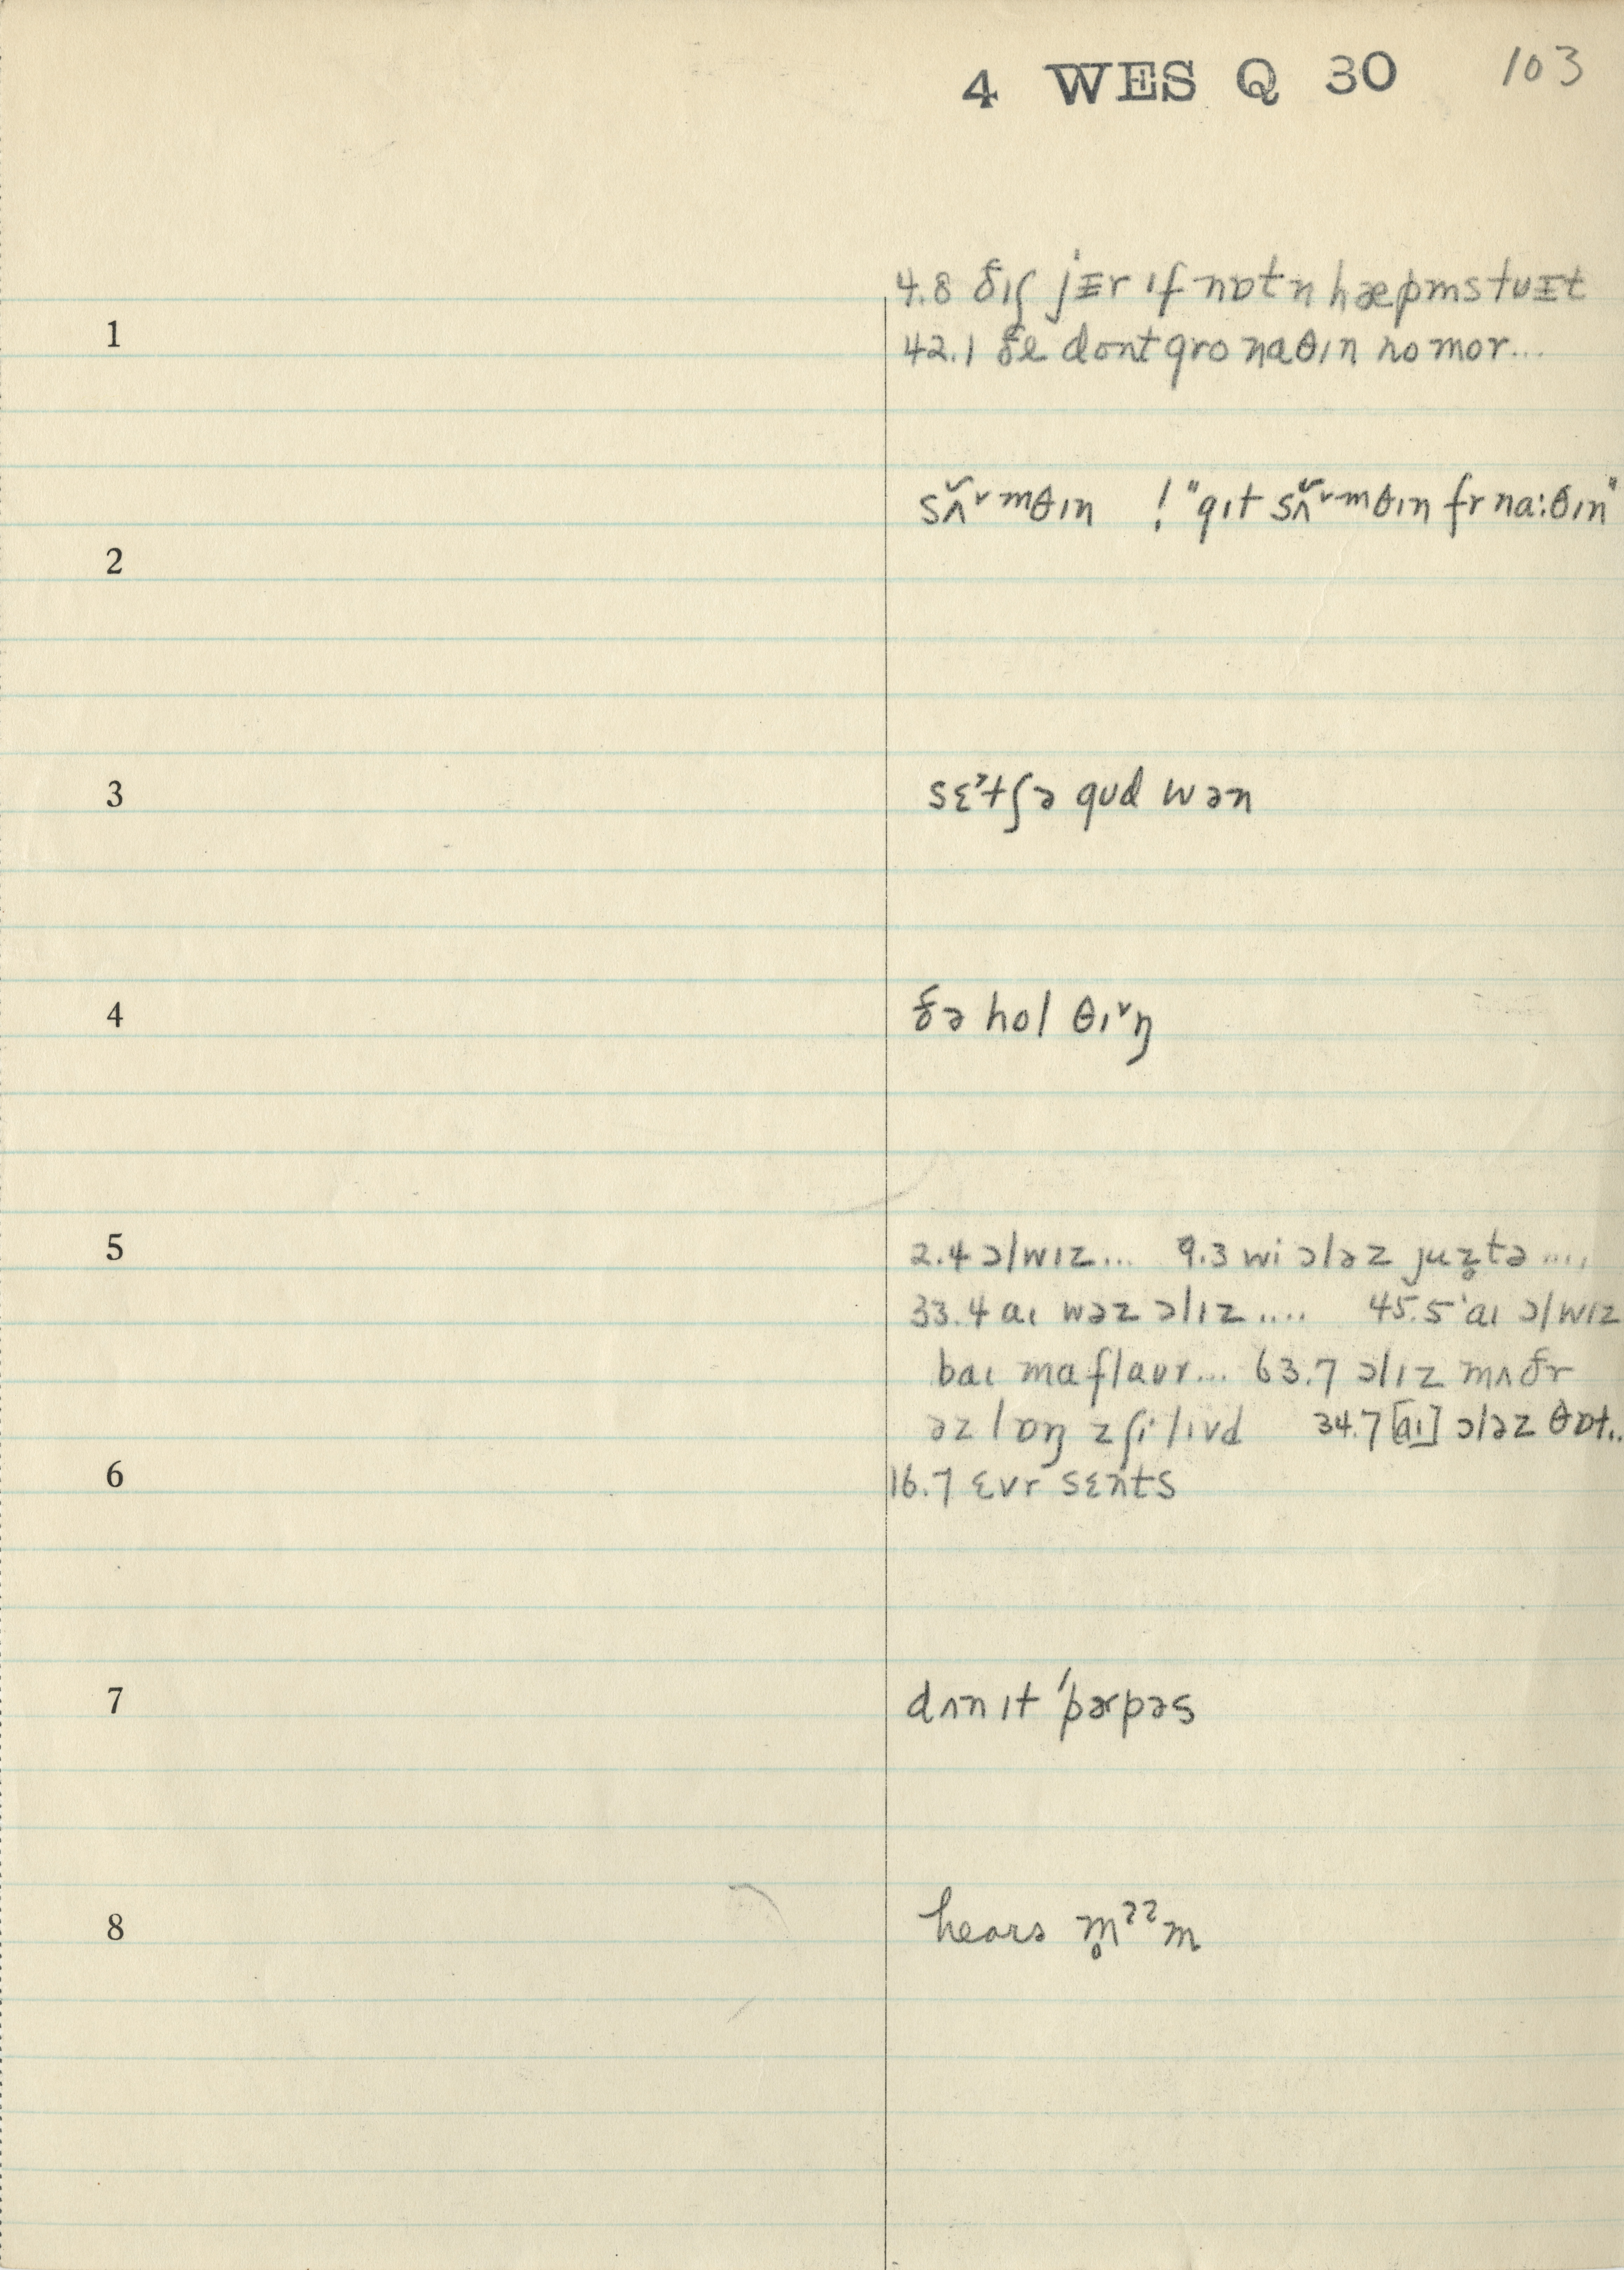 4 WES Q 30 103
4.8 ðɪʃ jɛr ɪf nɒtn hæpms tu ɪt
1 42.1 ðe dont gro naθɪn no mor...
sʌ̃˅mθɪn ! "gɪt sʌ̃˅mθɪn fr na:θɪn"
2
3 sɛˀtʃə gud wən
4 ðə hol θɪ˅ŋ
5 2.4 ɔlwɪz... 9.3 wi ɔləz juz̥tə....
33.4 aɪ wəz ɔlɪz.... 45.5 'aɪ ɔlwɪz
baɪ ma flaur... 63.7 ɔlɪz mʌðr
əz lɒŋ zʃi lɪvd 34.7 [aɪ] ɔləz θɒt..
6 16.7 ɛvr sɛnts
7 dʌn ɪt 'pɚpəs
8 hears m̥ˀˀm